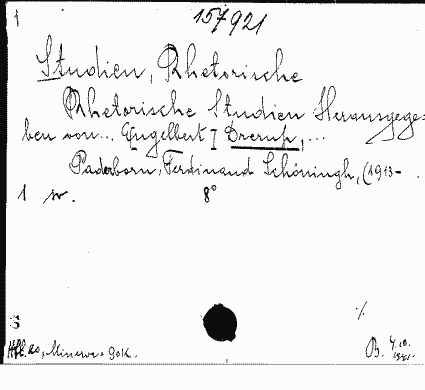 1 157921
Studien, Rhetorische
Rhetorische Studien Herausgege-
ben von... Engelbert I Drerup,...
Paderborn, Ferdinand Schöningh, (1913-
1 8°
S
B.